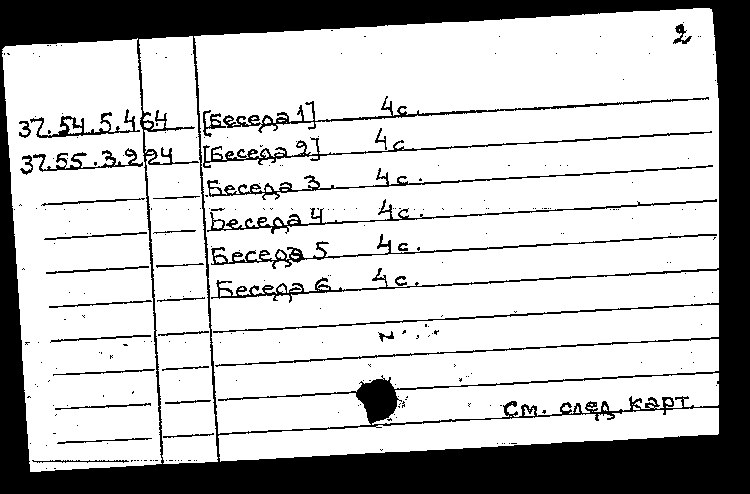 2
37.54.5.464 [Беседа 1] 4с.
37.55.3.224 [Беседа 2] 4с.
Беседа 3. 4с.
Беседа 4. 4с.
Беседа 5 4с.
Беседа 6. 4с.
См. след. карт.